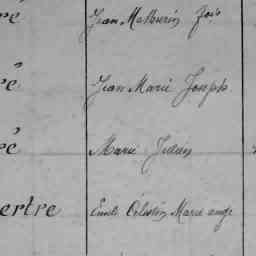 ré Jean Mathurin Fois
é Jean Marie Joseph
ré Marie Julien
ertre Emile Célestin Marie ange